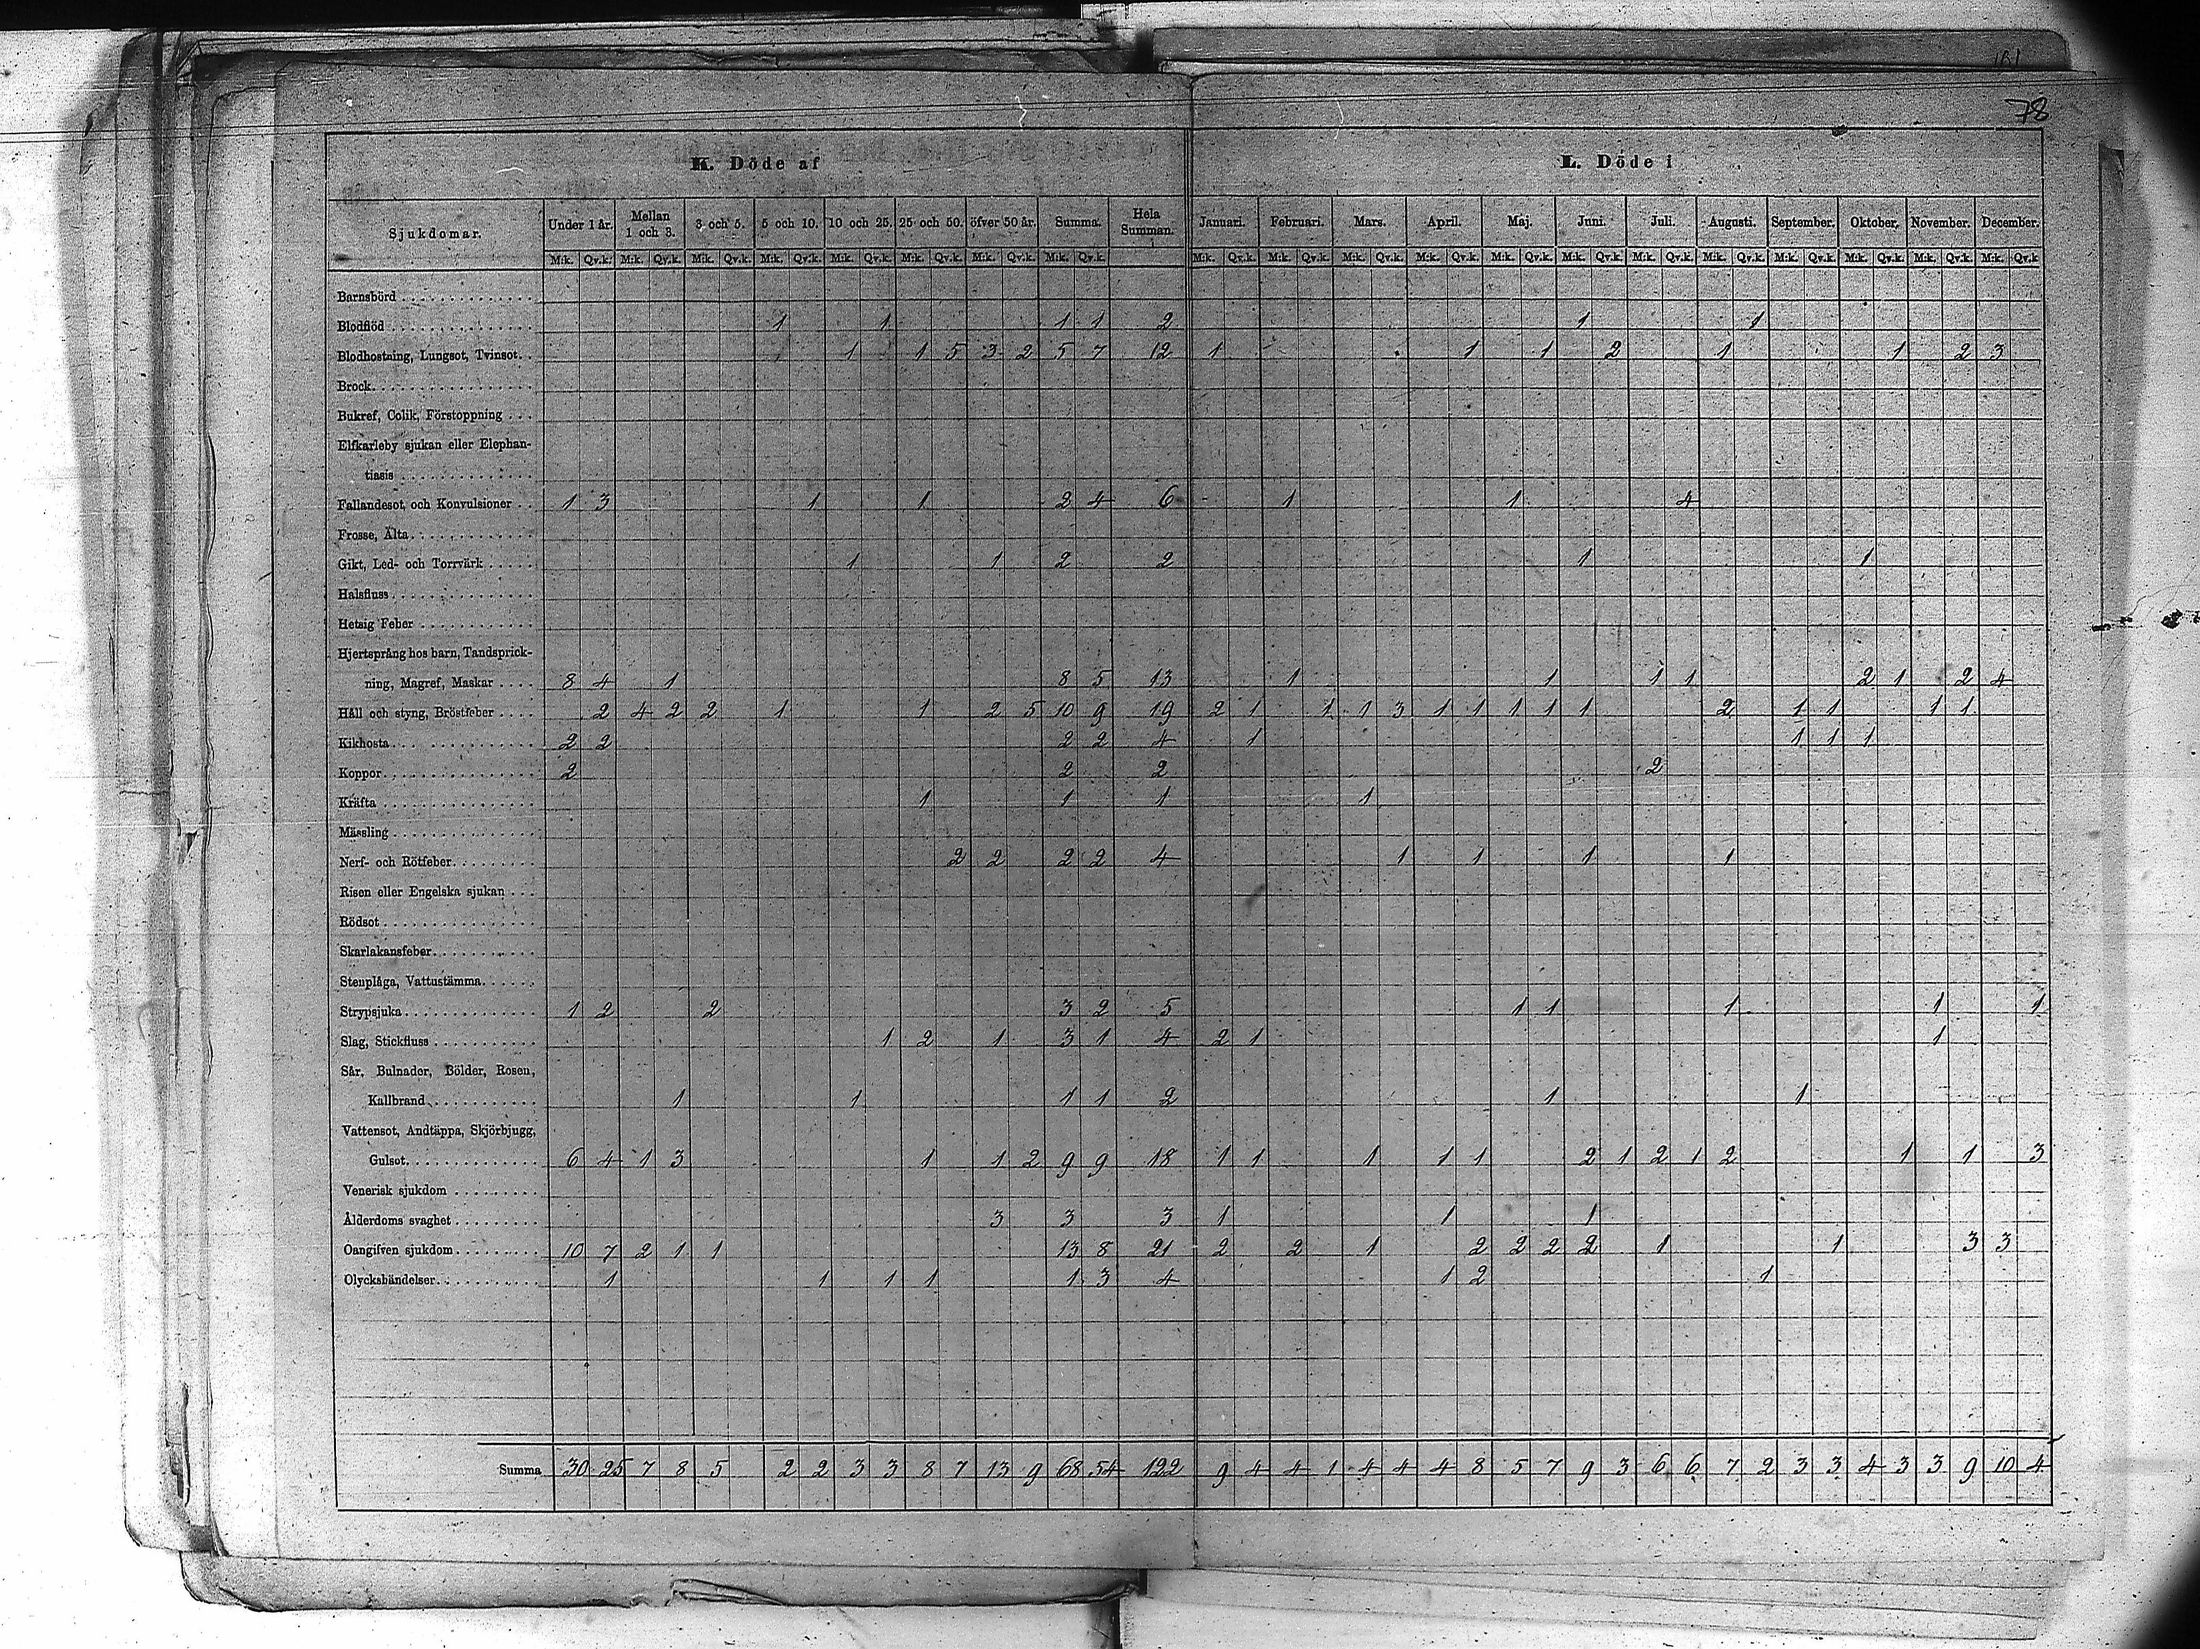 101
78
K. Döde af L. Döde i
Sjukdomar. Under 1 år. Mellan 1 och 3. 3 och 5. 5 och 10. 10 och 25. 25 och 50. öfver 50 år. Summa. Hela Summan. Januari. Februari. Mars. April. Maj. Juni. Juli. Augusti. September. Oktober. November. December.
M:k. Qv.k. M:k. Qv.k. M:k. Qv.k. M:k. Qv.k. M:k. Qv.k. M:k. Qv.k. M:k. Qv.k. M:k. Qv.k. M:k. Qv.k. M:k. Qv.k. M:k. Qv.k. M:k. Qv.k. M:k. Qv.k. M:k. Qv.k. M:k. Qv.k. M:k. Qv.k. M:k. Qv.k. M:k. Qv.k. M:k. Qv.k. M:k. Qv.k
Barnsbörd
Blodflöd 1 1 1 1 2 1 1
Blodhostning, Lungsot, Tvinsot. 1 1 5 3 2 5 7 12 1 1 1 2 1 1 2 3
Brock
Bukref, Colik, Förstoppning
Elfkarleby sjukan eller Elephan-
tiasis
Fallandesot, och Konvulsioner 1 3 1 1 2 4 6 1 1 4
Frosse, Älta
Gikt, Led- och Torrvärk 1 1 2 2 1 1
Halsfluss
Hetsig Feber
Hjertsprång hos barn, Tandsprick-
ning, Magref, Maskar 8 4 1 8 5 13 1 1 1 1 2 1 2 4
Håll och styng, Bröstfeber 2 4 2 2 1 1 2 5 10 9 19 2 1 1 1 3 1 1 1 1 1 2 1 1 1 1
Kikhosta 2 2 2 2 4 1 1 1 1
Koppor 2 2 2 2
Kräfta 1 1 1 1
Mässling
Nerf- och Rötfeber 2 2 2 2 4 1 1 1 1
Risen eller Engelska sjukan
Rödsot
Skarlakansfeber
Stenplåga, Vattustämma
Strypsjuka 1 2 2 3 2 5 1 1 1 1 1
Slag, Stickfluss 1 2 1 3 1 4 2 1 1
Sår, Bulnader, Bölder, Rosen,
Kallbrand 1 1 1 1 2 1 1
Vattensot, Andtäppa, Skjörbjugg,
Gulsot 6 4 1 3 1 1 2 9 9 18 1 1 1 1 1 2 1 2 1 2 1 1 3
Venerisk sjukdom
Ålderdoms svaghet 3 3 3 1 1 1
Oangifven sjukdom 10 7 2 1 1 13 8 21 2 2 1 2 2 2 2 1 1 3 3
Olycksbändelser 1 1 1 1 1 3 4 1 2 1
Summa 30 25 7 8 5 2 2 3 3 8 7 13 9 68 54 122 9 4 4 1 4 4 4 8 5 7 9 3 6 6 7 2 3 3 4 3 3 9 10 4